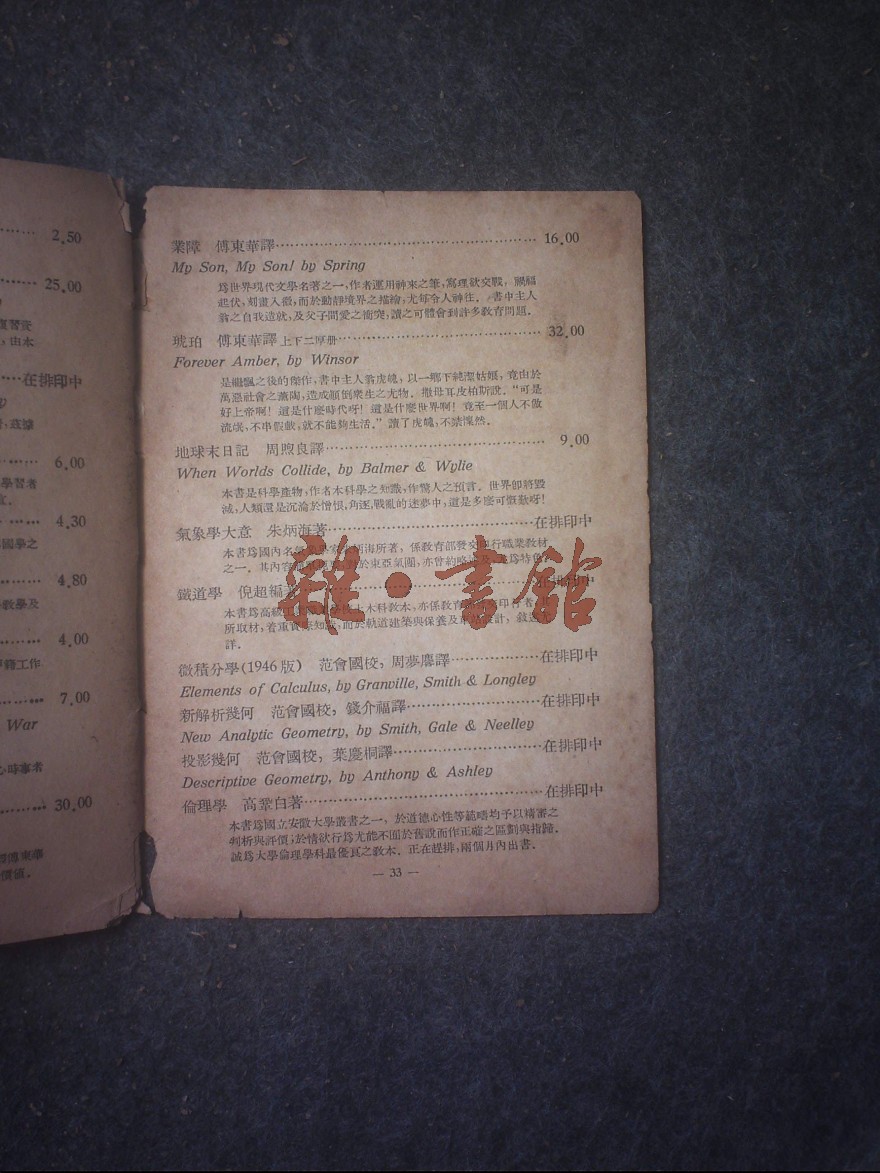 2.50
25.00
在排印中
6.00
學習者
4.30
國學之
4.80
教學及
4.00
工作
7.00
War
30.00
傅東華
價值．
業障　傅東華譯 16.00
My Son, My Son! by Spring
爲世界現代文學名著之一，作者運用神來之筆，寫理欲交戰，禍福
起伏，刻畫入微，而於動靜境界之描繪，尤每令人神往．書中主人
翁之自我造就，及父子間愛之衝突，讀之可體會到許多教育問題．
琥珀　傅東華譯 上下二厚册 32.00
Forever Amber, by Winsor
是繼飄之後的傑作，書中主人翁虎魄，以一鄉下純潔姑娘，竟由於
萬惡社會之薰陶，造成顛倒衆生之尤物．撒母耳皮柏斯說．“可是
好上帝啊！這是什麽時代呀！這是什麽世界啊！竟至一個人不做
流氓，不串假欵，就不能夠生活．”讀了虎魄，不禁慨然．
地球末日記　周煦良譯 9.00
When Worlds Collide, by Balmer & Wylie
本書是科學產物，作者本科學之知識，作驚人之預言．世界卽將毀
滅，人類還是沉淪於憎恨，角逐，戰亂的迷夢中，這是多麽可慨歎呀！
氣象學大意　朱炳海著 在排印中
本書爲國內名 朱炳海所著，係教育部發交 行職業教材
之一．其內容 於東亞氣團，亦曾約略 爲特色
雜・書館
鐵道學　倪超編著 在排印中
本書爲高級工 土木科教本，亦係教育部 印行者
所取材，着重實 知識，而於軌道建築與保養及 設計，敍述
詳．
微積分學（1946版）　范會國校，周夢麐譯 在排印中
Elements of Calculus, by Granville, Smith & Longley
新解析幾何　范會國校，錢介福譯 在排印中
New Analytic Geometry, by Smith, Gale & Neelley
投影幾何　范會國校，葉慶桐譯 在排印中
Descriptive Geometry, by Anthony & Ashley
倫理學　高鞏白著 在排印中
本書爲國立安徽大學叢書之一，於道德心性等範疇均予以精審之
判析與評價；於情欲行爲尤能不囿於舊說而作正確之區劃與指歸．
誠爲大學倫理學科最優良之教本．正在趕排，兩個月內出書．
— 33 —